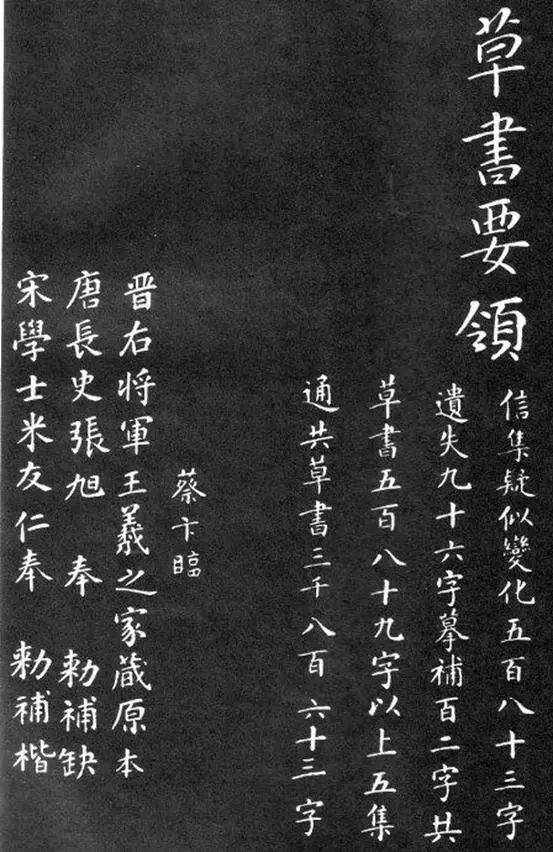 草書要領
信集疑似變化五百八十三字
遺失九十六字摹補百二字共
草書五百八十九字以上五集
通共草書三千八百六十三字
蔡卞臨
晋右將軍王羲之家蔵原本
唐長史張旭 奉 勅補缺
宋學士米友仁奉 勅補楷